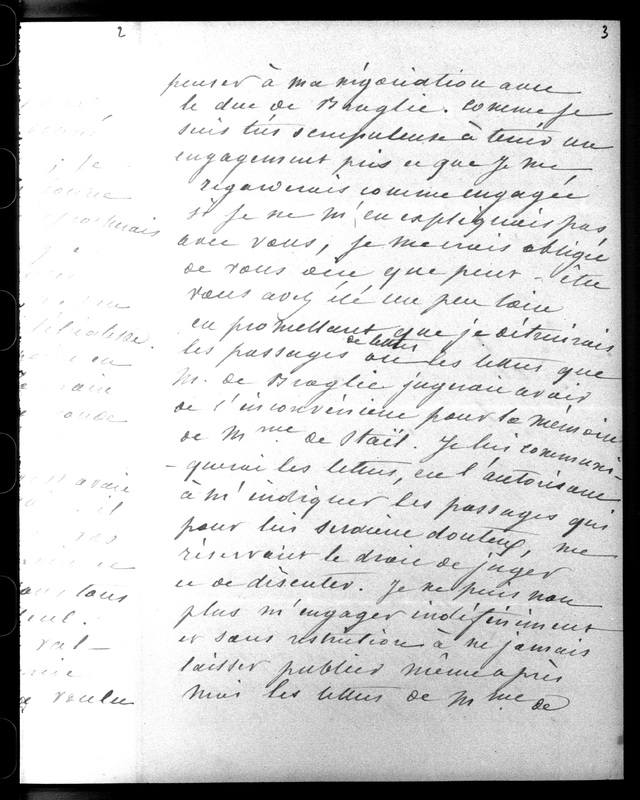 2
3
penser à ma négociation avec
le duc de Broglie. Comme je
suis très scrupuleuse à tenir un
engagement pris et que je me
regarderais comme engagée
si je ne m'en expliquais pas
avec vous, je me crois obligée
de vous dire que peut-être
vous avez été un peu loin
en promettant que je détruirais
les passages de lettres ou les lettres que
M. de Broglie jugerait avoir
de l'inconvénient pour la mémoire
de Mme de Staël. Je lui communi-
-querai les lettres, en l'autorisant
à m'indiquer les passages qui
pour lui seraient douteux, me
réservant le droit de juger
et de discuter. Je ne puis non
plus m'engager indéfiniment
et sans restriction à ne jamais
laisser publier même après
moi les lettres de Mme de
; je
prochai
ans tous
voulu